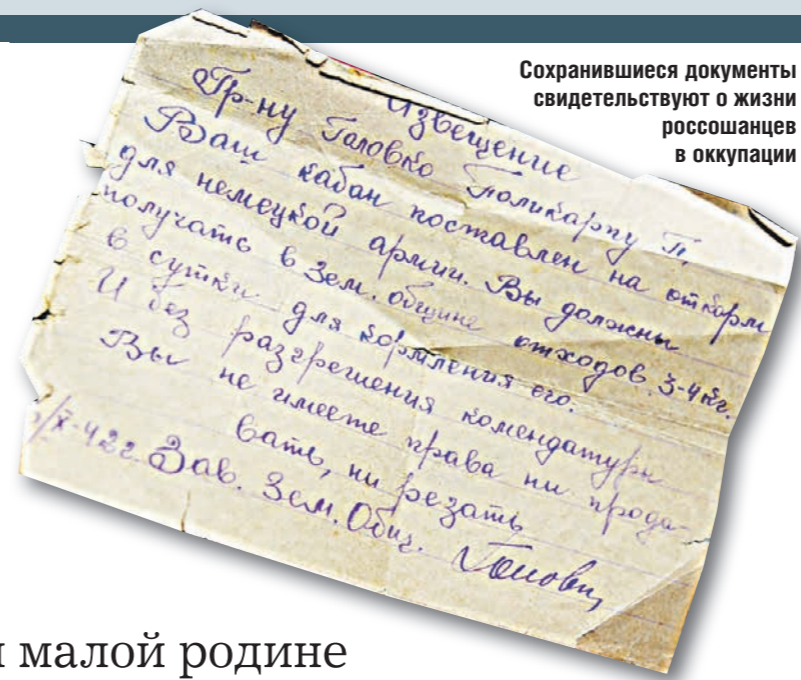 Сохранившиеся документы
свидетельствуют о жизни
россошанцев
в оккупации
Извещение
Гр-ну Головко Поликарпу П.
Ваш кабан поставлен на откорм
для немецкой армии. Вы должны
получать в Зем. общине отходов 3-4 кг.
в сутки для кормления его.
И без разрешения комендатуры
Вы не имеете права ни прода-
вать, ни резать
/X-42 г. Зав. Зем. Общ.
малой родине